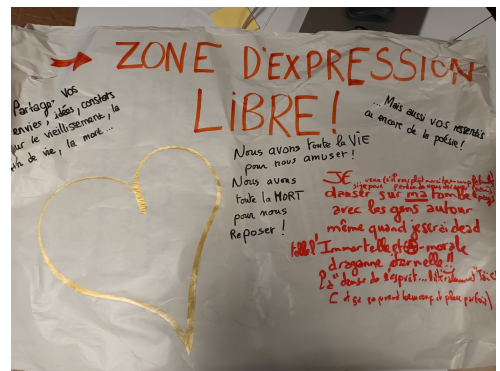 ZONE D'EXPRESSION
LIBRE !
Partagez vos
envies, idées, constats
sur le vieillissement, la
fin de vie, la mort...
... Mais aussi vos ressentis
ou encore de la poésie !
Nous avons toute la VIE
pour nous amuser !
Nous avons
toute la MORT
pour nous
Reposer !
JE
danser sur ma tombe
avec les gens autour
même quand je serai dead
telle l'Immortelle et A-morale
dragonne éternelle !!
La "danse de l'esprit...
C et ça prend beaucoup de place parfois)